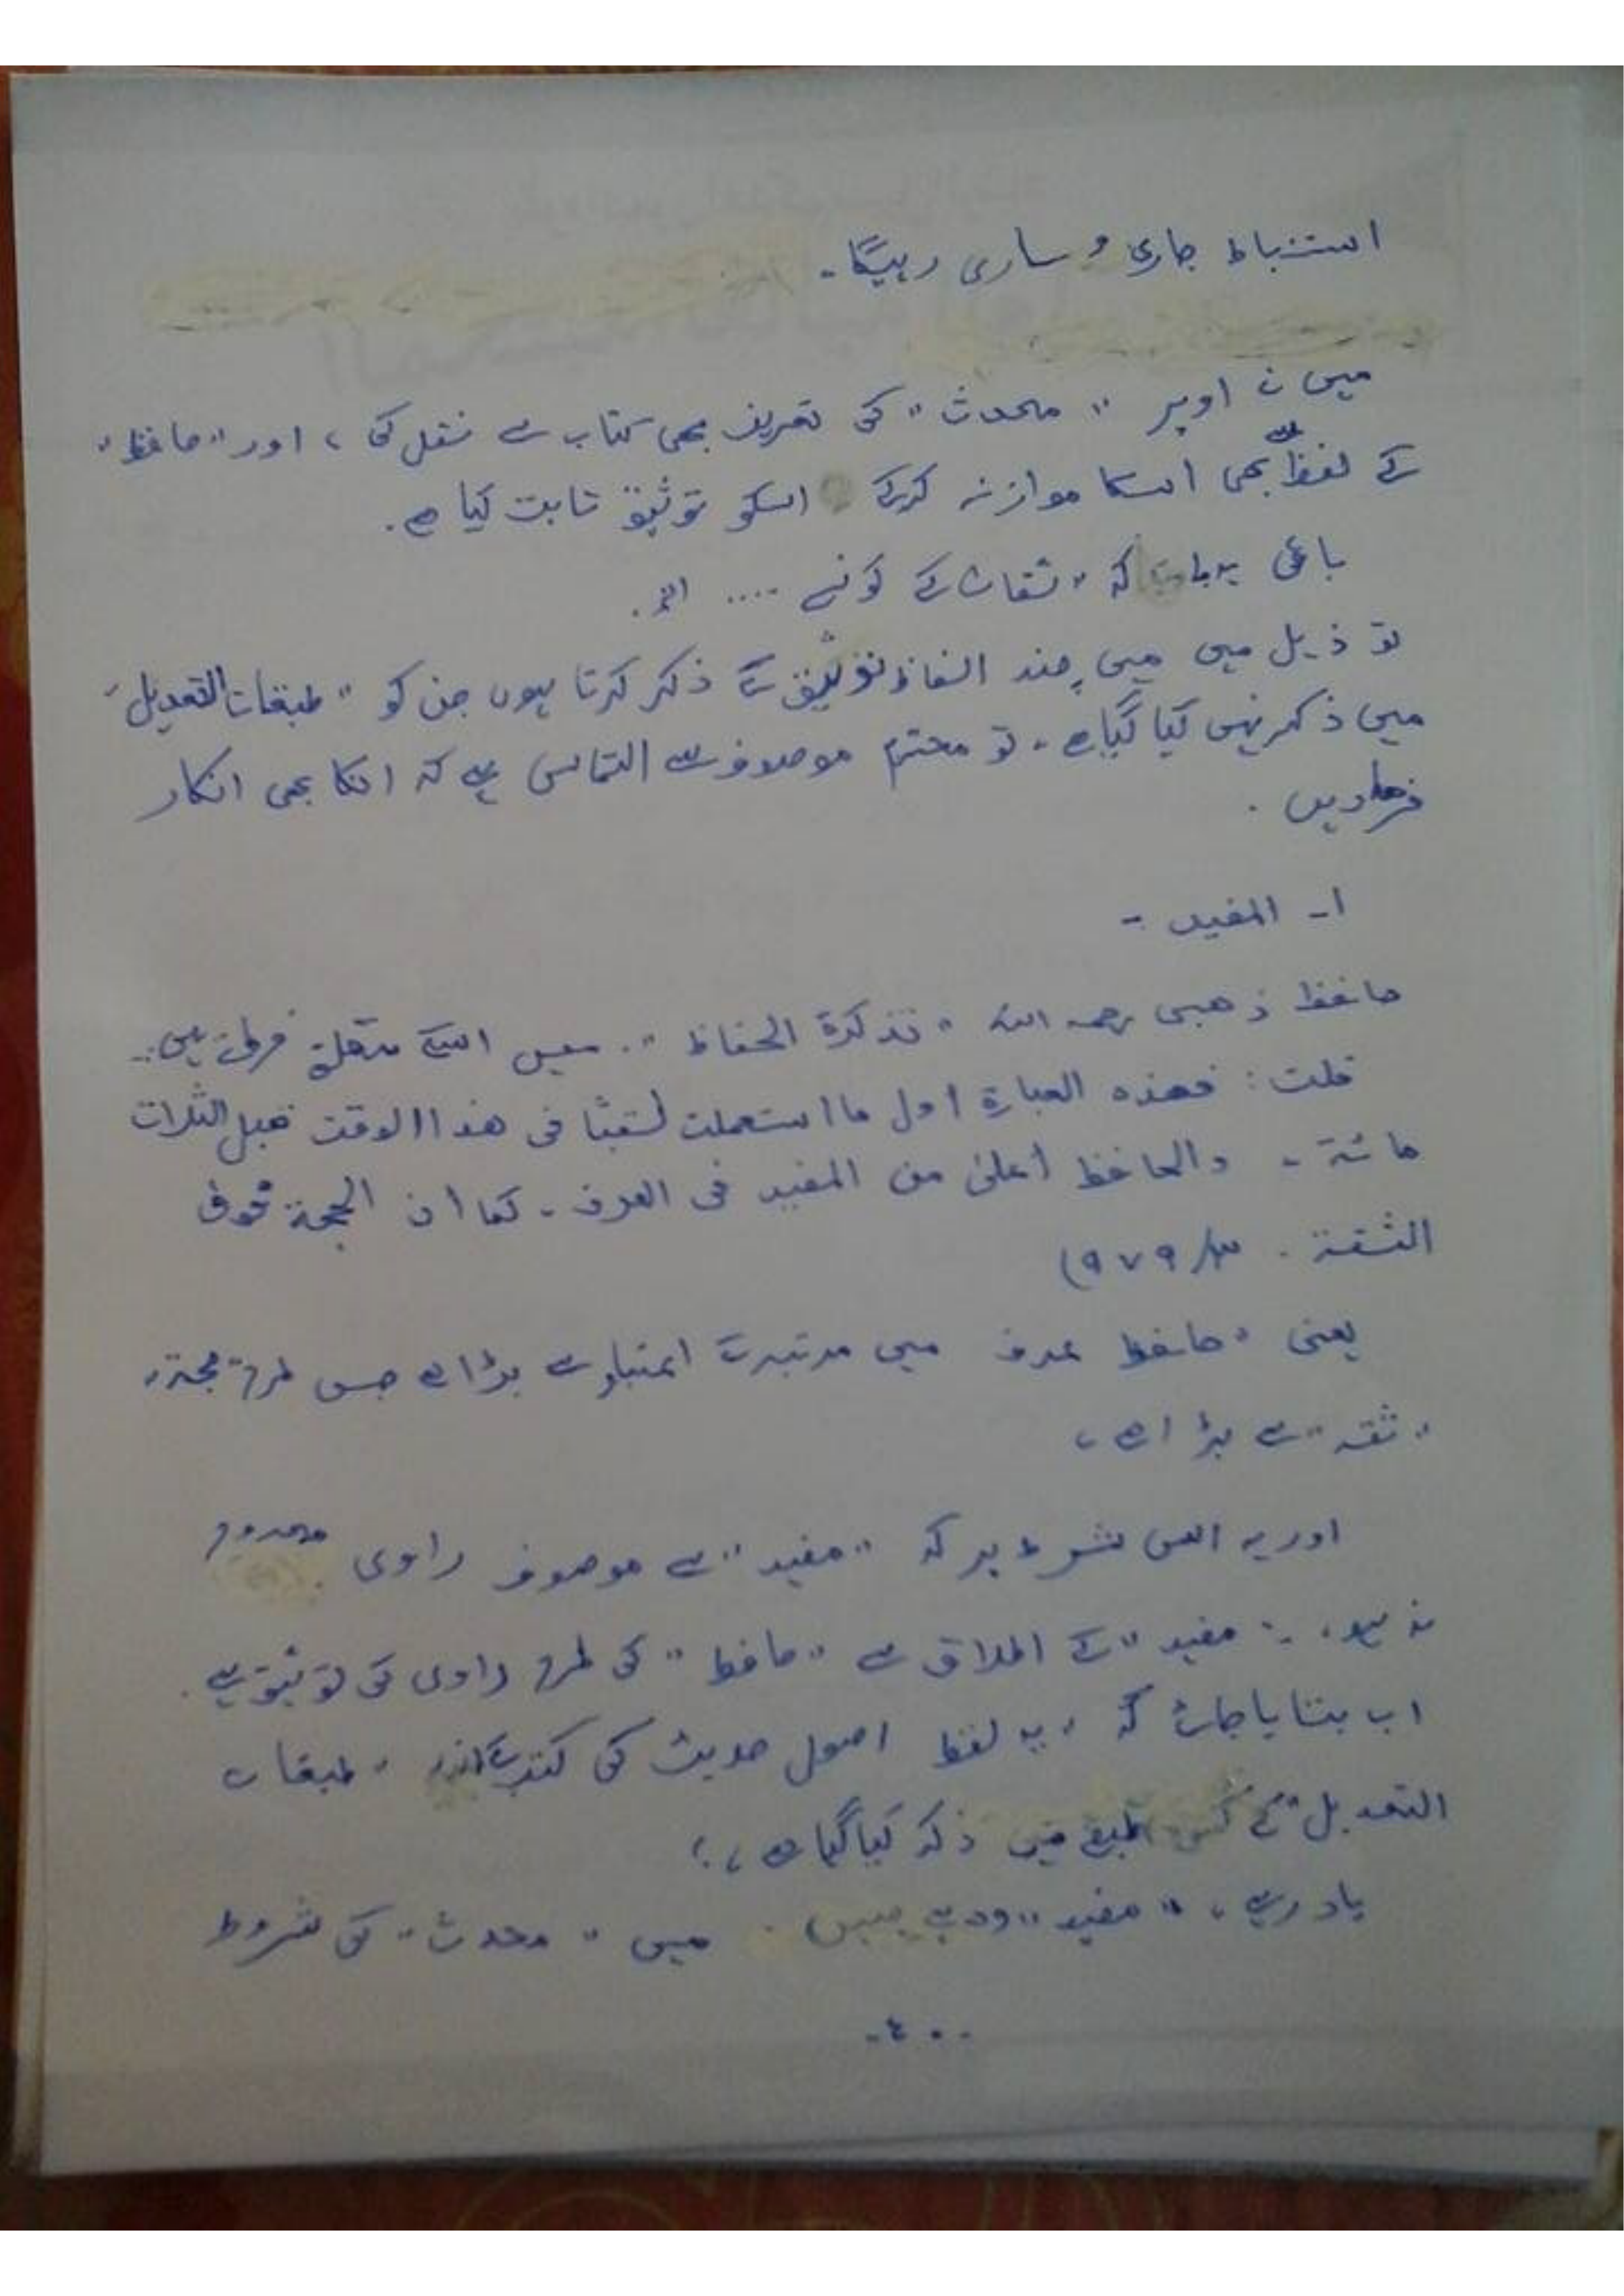 استنباط جاری و ساری رہیگا۔
میں نے اوپر "محدث" کی تعریف بھی کتاب سے نقل کی، اور "حافظ"
کے لفظ سے بھی اسکا موازنہ کرکے اسکو توثیق ثابت کیا ہے۔
باقی یہ بات کہ "ثقات کے کونسے .... الخ۔
تو ذیل میں میں چند الفاظ توثیق کے ذکر کرتا ہوں جن کو "طبقات التعدیل"
میں ذکر نہیں کیا گیا ہے۔ تو محترم موصوف سے التماس ہے کہ انکا بھی انکار
فرمادیں۔
۱۔ المفید :-
حافظ ذهبی رحمہ اللہ "تذکرۃ الحفاظ" میں اسکے متعلق فرماتے ہیں:-
قلت: فهذه العبارة اول ما استعملت لقبًا فی هذا الوقت قبل الثلاث
مائة - والحافظ أعلی من المفید فی العرف - کما ان الحجة فوق
الثقة - ۳/۹۷۹)
یعنی "حافظ عرف میں مرتبہ کے اعتبار سے بڑا ہے جس طرح "حجۃ"
"ثقہ" سے بڑا ہے،
اور یہ اس شرط پر کہ "مفید" سے موصوف راوی مجروح
نہ ہو، "مفید" کے اطلاق سے "حافظ" کی طرح راوی کی توثیق ہے۔
اب بتایا جائے کہ، یہ لفظ اصول حدیث کی کتب کے اندر "طبقات
التعدیل" کے کس طبقے میں ذکر کیا گیا ہے،؟
یاد رہے، "مفید" وہ ہے جس میں "محدث" کی شروط
-۴۰-